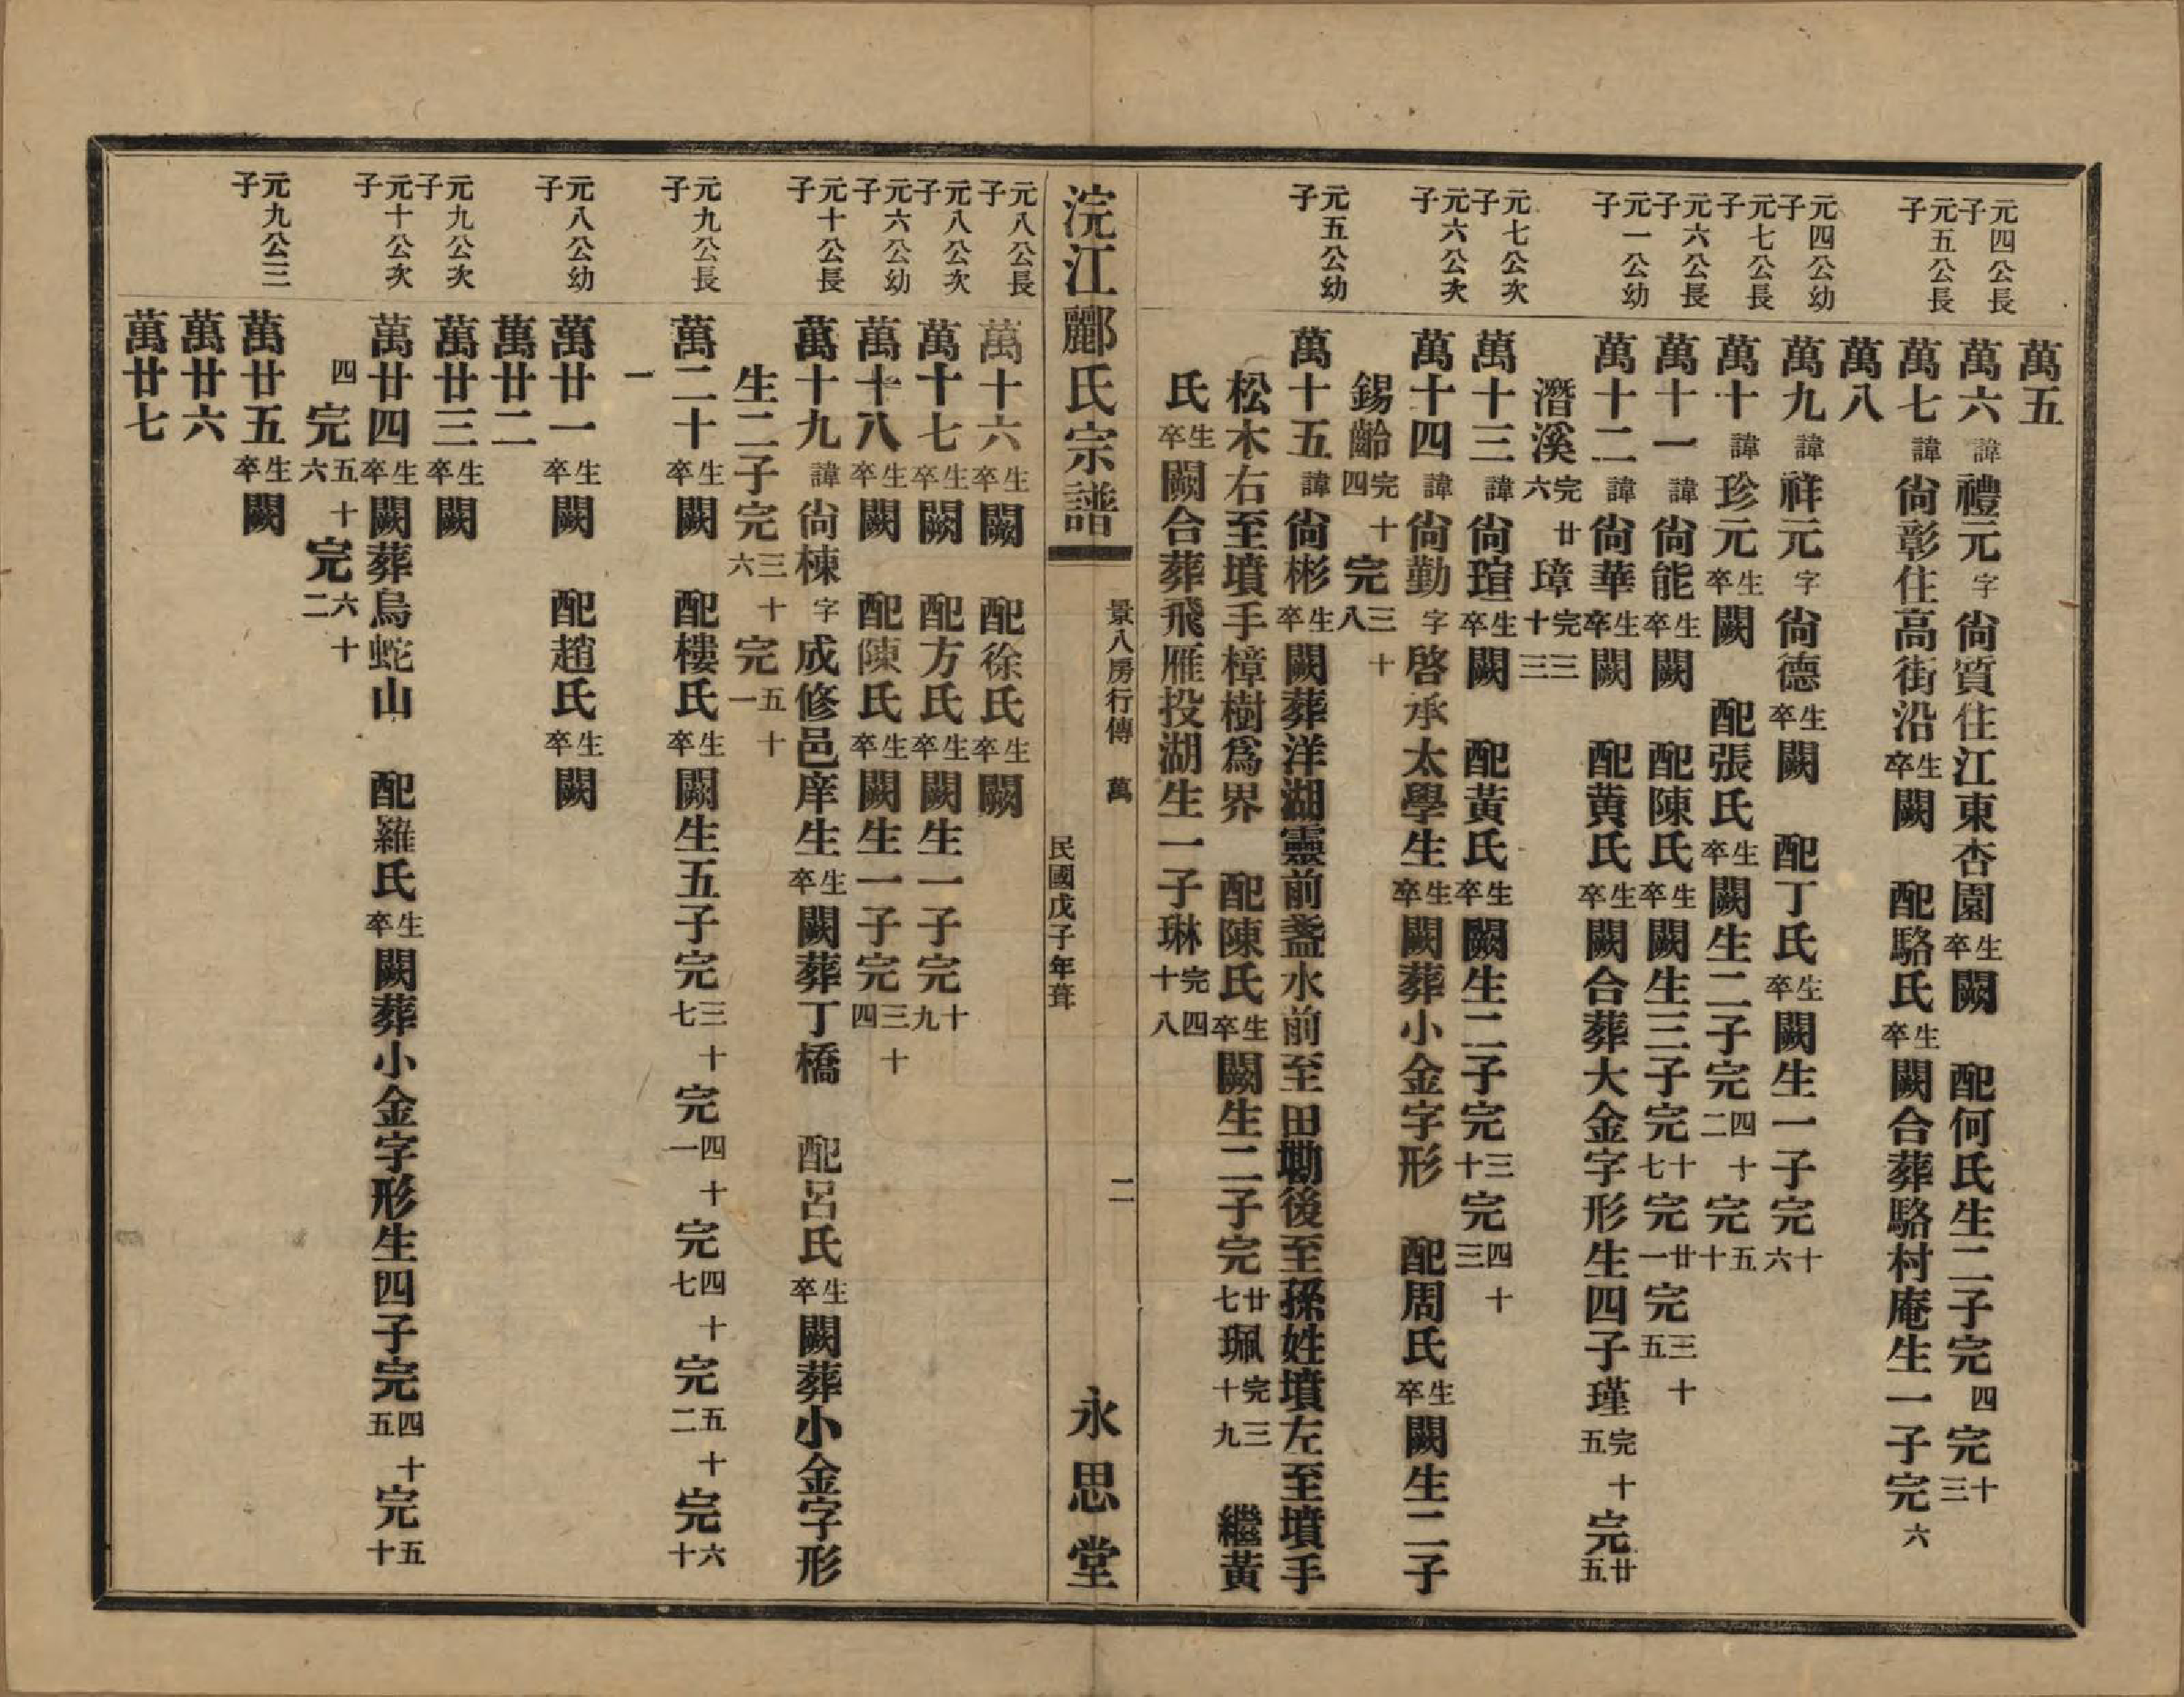 萬五
元四公長子　萬六諱禮元字尙質住江東杏園生卒闕　配何氏生二子完四完十三
元五公長子　萬七諱尙彰住高街沿生卒闕　配駱氏生卒闕合葬駱村庵生一子完六
萬八
元四公幼子　萬九諱祥元字尙德生卒闕　配丁氏生卒闕生一子完十六
元七公長子　萬十諱珍元生卒闕　配張氏生卒闕生二子完四十二完五十
元六公長子　萬十一諱尙能生卒闕　配陳氏生卒闕生三子完十七完廿一完三十五
元一公幼子　萬十二諱尙華生卒闕　配黄氏生卒闕合葬大金字形生四子瑾完十五完廿五
潛溪完廿六璋完三十三
元七公次子　萬十三諱尙瑄生卒闕　配黃氏生卒闕生二子完三十完四十三
元六公次子　萬十四諱尙勤字啓承太學生生卒闕葬小金字形　配周氏生卒闕生二子
錫齡完十四完三十八
元五公幼子　萬十五諱尙彬生卒闕葬洋湖靈前盞水前至田勘後至孫姓墳左至墳手
松木右至墳手樟樹爲界　配陳氏生卒闕生二子完廿七珮完三十九　繼黃
氏生卒闕合葬飛雁投湖生一子琳完四十八
浣江酈氏宗譜　景八房行傳　萬　二　民國戊子年葺　永思堂
元八公長子　萬十六生卒闕　配徐氏生卒闕
元八公次子　萬十七生卒闕　配方氏生卒闕生一子完十九
元六公幼子　萬十八生卒闕　配陳氏生卒闕生一子完三十四
元十公長子　萬十九諱尙棟字成修邑庠生生卒闕葬丁橋　配呂氏生卒闕葬小金字形
生二子完三十六完五十一
元九公長子　萬二十生卒闕　配樓氏生卒闕生五子完三十七完四十一完四十七完五十二完六十
一
元八公幼子　萬廿一生卒闕　配趙氏生卒闕
萬廿二
元九公次子　萬廿三生卒闕
元十公次子　萬廿四生卒闕葬烏蛇山　配羅氏生卒闕葬小金字形生四子完四十五完五十
四完五十六完六十二
元九公三子　萬廿五生卒闕
萬廿六
萬廿七